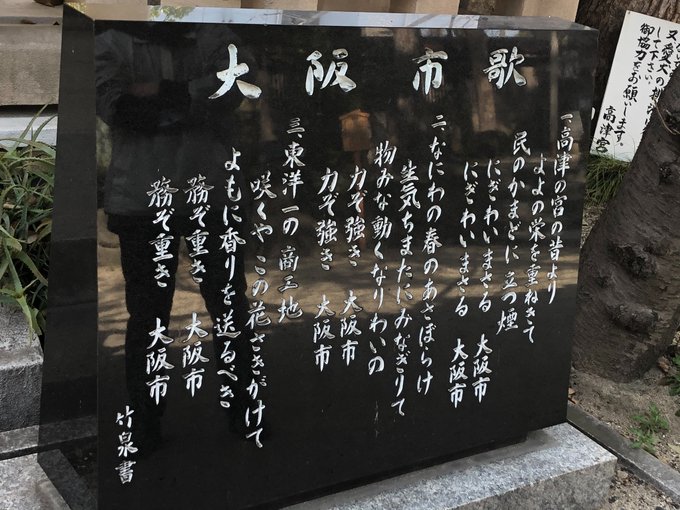 大阪市歌
一、高津の宮の昔より
よよの栄を重ねきて
民のかまどに立つ煙
にぎわいまさる 大阪市
にぎわいまさる 大阪市
二、なにわの春のあさぼらけ
生気ちまたにみなぎりて
物みな動くなりわいの
力ぞ強き 大阪市
力ぞ強き 大阪市
三、東洋一の商工地
咲くやこの花さきがけて
よもに香りを送るべき
務ぞ重き 大阪市
務ぞ重き 大阪市
竹泉書
又愛犬の
して下さい。
御協力をお願いします。
高津宮